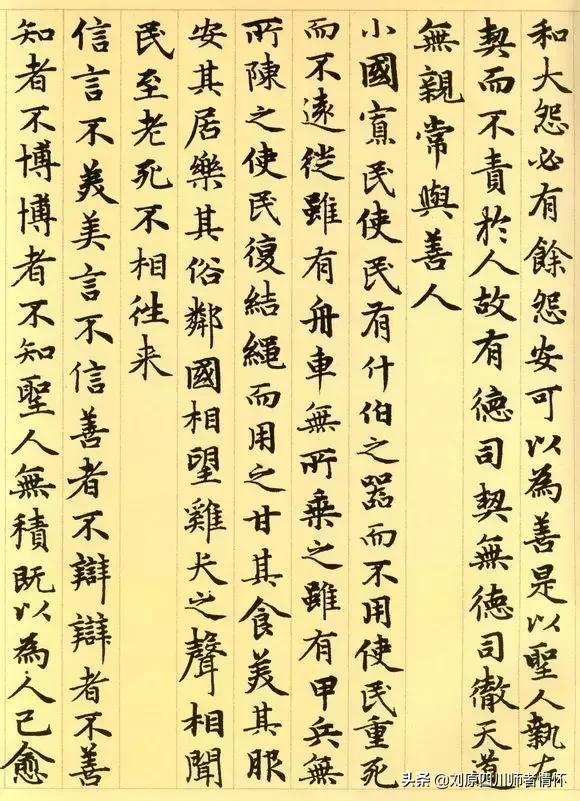 和大怨必有餘怨安可以為善是以聖人執左
契而不責於人故有德司契無德司徹天道
無親常與善人
小國寡民使民有什伯之器而不用使民重死
而不遠徙雖有舟車無所乘之雖有甲兵無
所陳之使民復結繩而用之甘其食美其服
安其居樂其俗鄰國相望雞犬之聲相聞
民至老死不相往来
信言不美美言不信善者不辯辯者不善
知者不博博者不知聖人無積既以為人己愈
头条 @刘原四川师者情怀